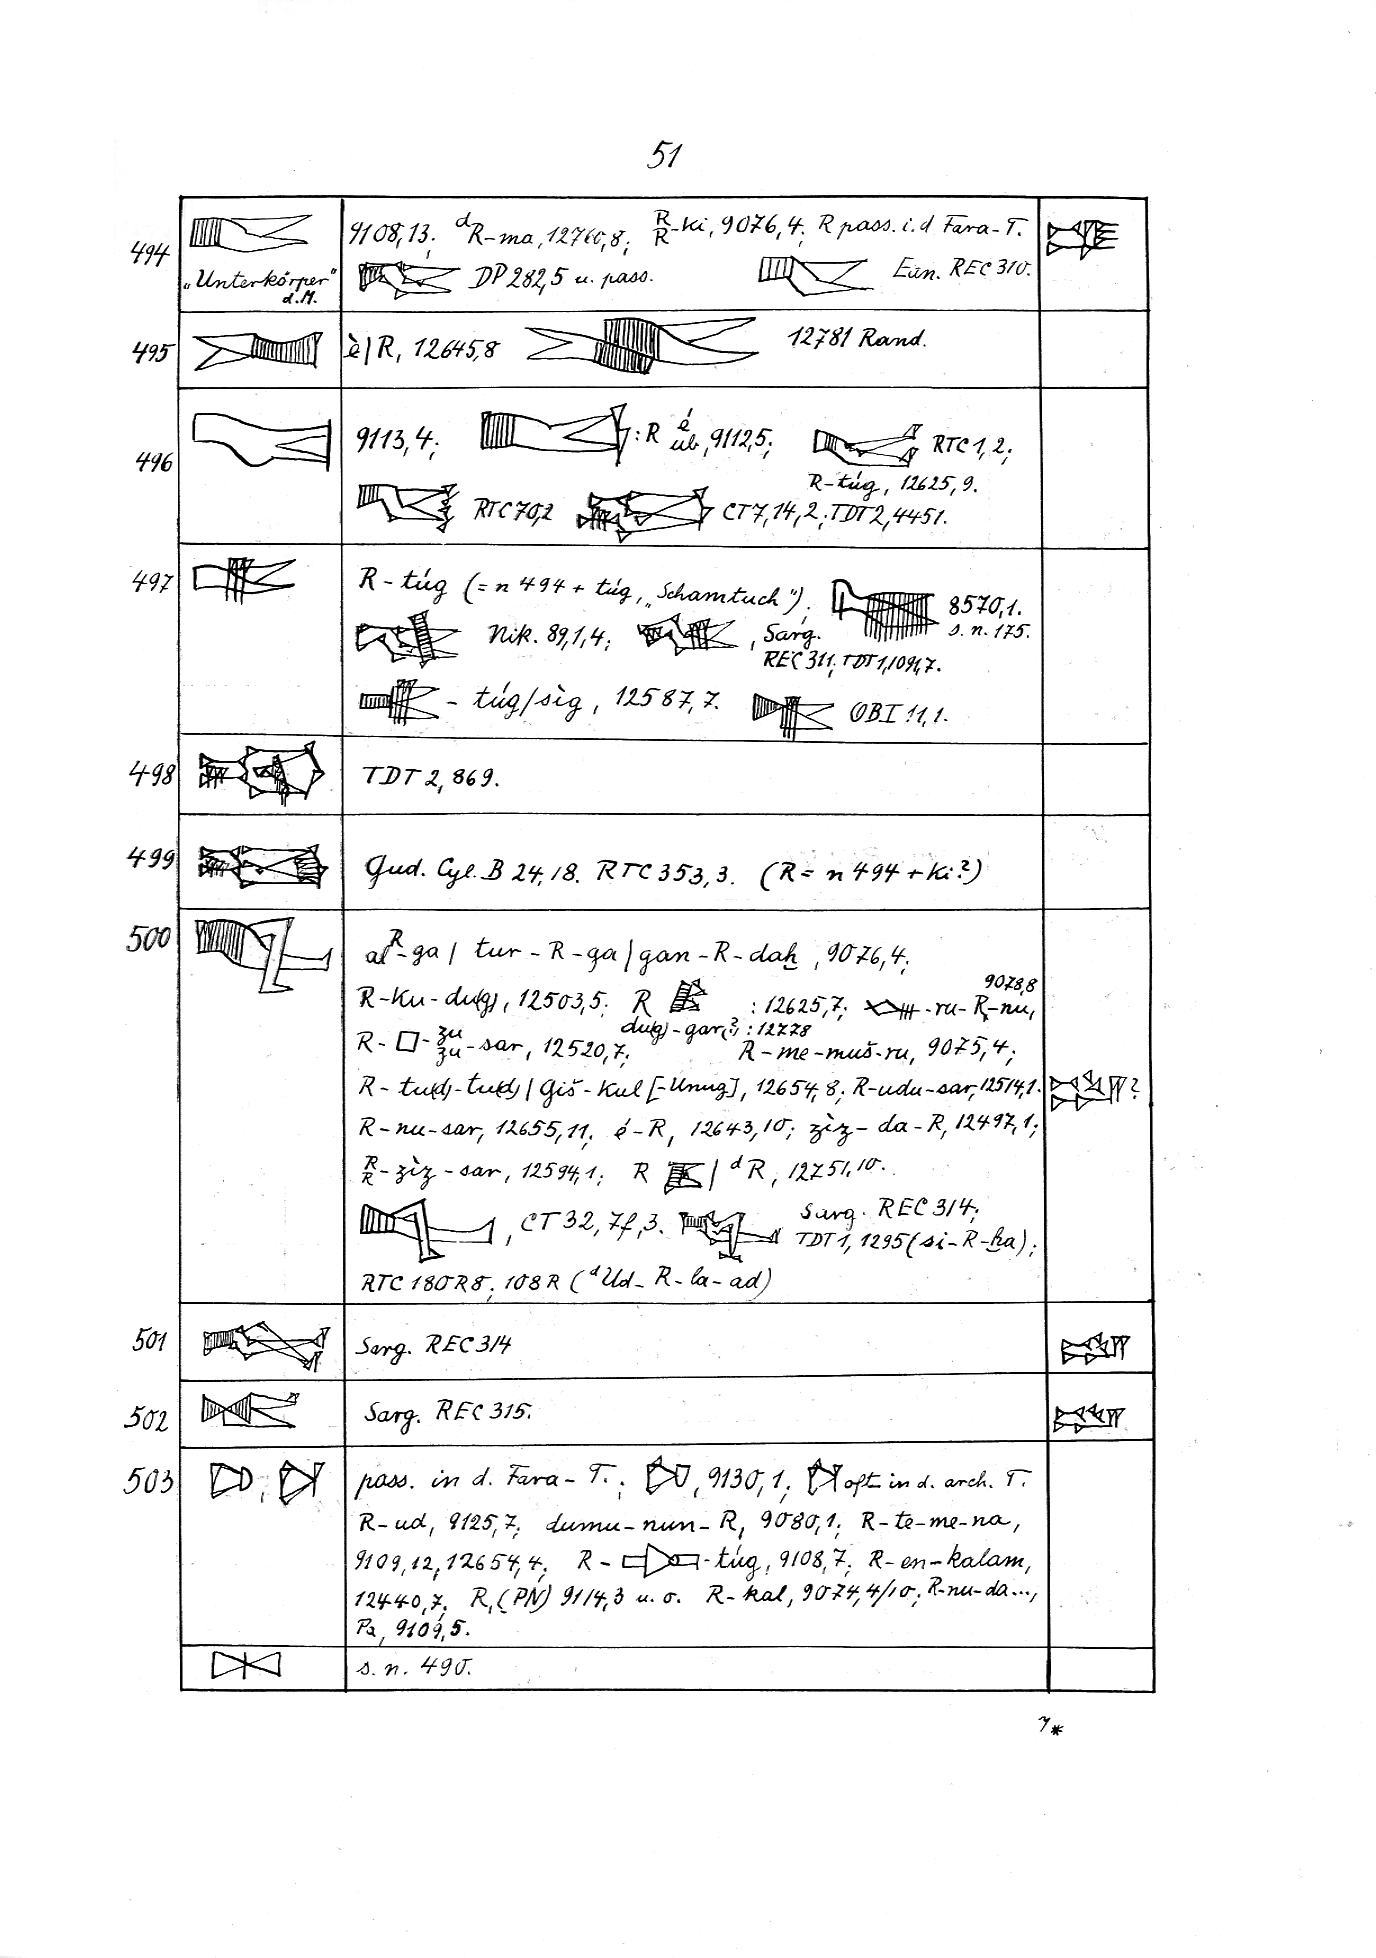 51
494 „Unterkörper“ d.M. 9108,13; ᵈR-ma, 12760,8; R/R-ki, 9076,4; R pass. i. d Fara-T.
DP 282,5 u. pass. Ean. REC 310.
495 è/R, 12645,8 12781 Rand.
496 9113,4; : R é ub, 9112,5; RTC 1,2;
R-túg, 12625,9.
RTC 70,2 CT 7,14,2; TDT 2,4451.
497 R-túg (= n 494 + túg, „Schamtuch“); 8570,1.
s. n. 175.
Nik. 89,1,4; , Sarg.
REC 311; TDT 1,1091,7.
-túg/sìg, 12587,7. OBI 11,1.
498 TDT 2,869.
499 Gud. Cyl. B 24,18. RTC 353,3. (R = n 494 + ki?)
500 al-R-ga / tur-R-ga / gan-R-daḫ, 9076,4;
9078,8
R-ku-du(g), 12503,5; R : 12625,7; -ru-R-nu,
du(g)-gar(?) : 12778
R-□-zu/zu-sar, 12520,7; R-me-muš-ru, 9075,4;
R-tu(d)-tu(d) / Giš-kul[-Unug], 12654,8; R-udu-sar, 12514,1. ?
R-nu-sar, 12655,11; é-R, 12643,10; zìz-da-R, 12497,1;
R/R-zìz-sar, 12594,1; R / ᵈR, 12751,10.
, CT 32,7f,3. Sarg. REC 314;
TDT 1,1295 (si-R-ḫa);
RTC 180 R 8; 108 R (ᵈUd-R-la-ad)
501 Sarg. REC 314
502 Sarg. REC 315.
503 pass. in d. Fara-T.; , 9130,1; oft in d. arch. T.
R-ud, 9125,7; dumu-nun-R, 9080,1; R-te-me-na,
9109,12; 12654,4; R- -túg, 9108,7; R-en-kalam,
12440,7; R, (PN) 9114,3 u. o. R-kal, 9074,4/10; R-nu-da...,
Pa, 9109,5.
s. n. 490.
7*